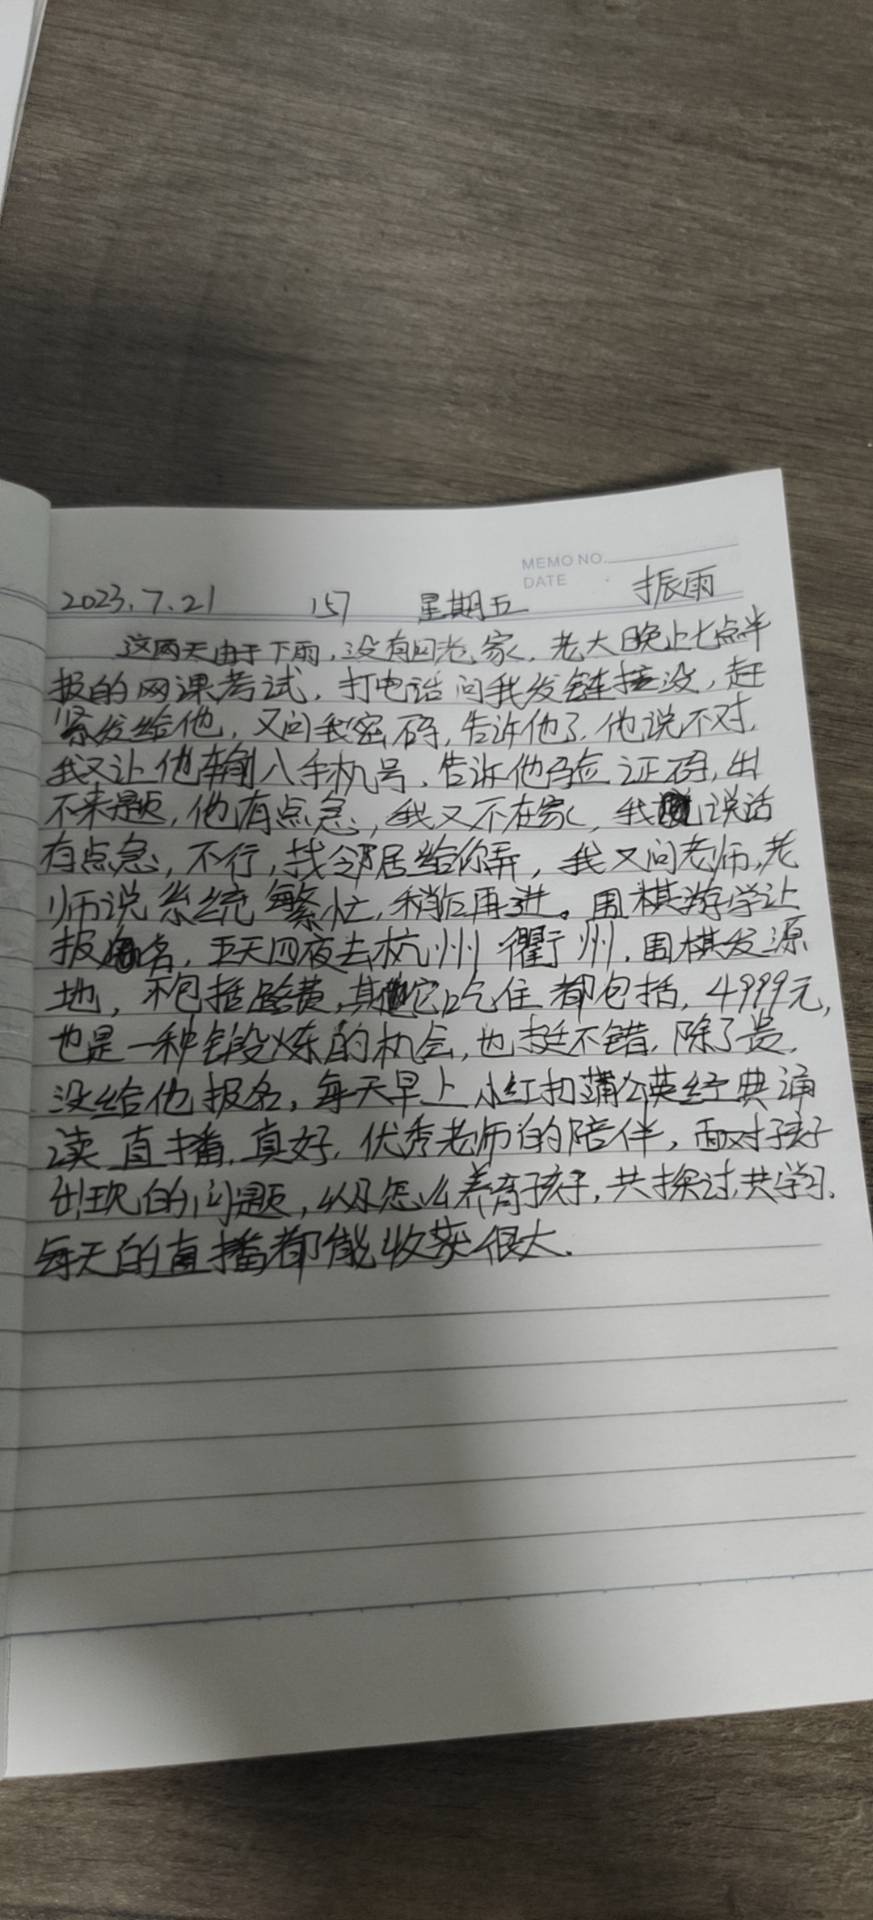 MEMO NO.
DATE
2023.7.21 157 星期五 振雨
这两天由于下雨,没有回老家,老大晚上七点半
报的网课考试,打电话问我发链接没,赶
紧发给他,又问我密码,告诉他了,他说不对,
我又让他输入手机号,告诉他验证码,出
不来题,他有点急,我又不在家,我说话
有点急,不行,找邻居给你弄,我又问老师,老
师说系统繁忙,稍后再进。围棋游学让
报名,五天四夜去杭州衢州,围棋发源
地,不包括路费,其它吃住都包括,4999元,
也是一种锻炼的机会,也挺不错,除了贵,
没给他报名,每天早上小红扣蒲公英经典诵
读直播,真好,优秀老师的陪伴,面对孩子
出现的问题,以及怎么养育孩子,共探讨,共学习,
每天的直播都能收获很大.